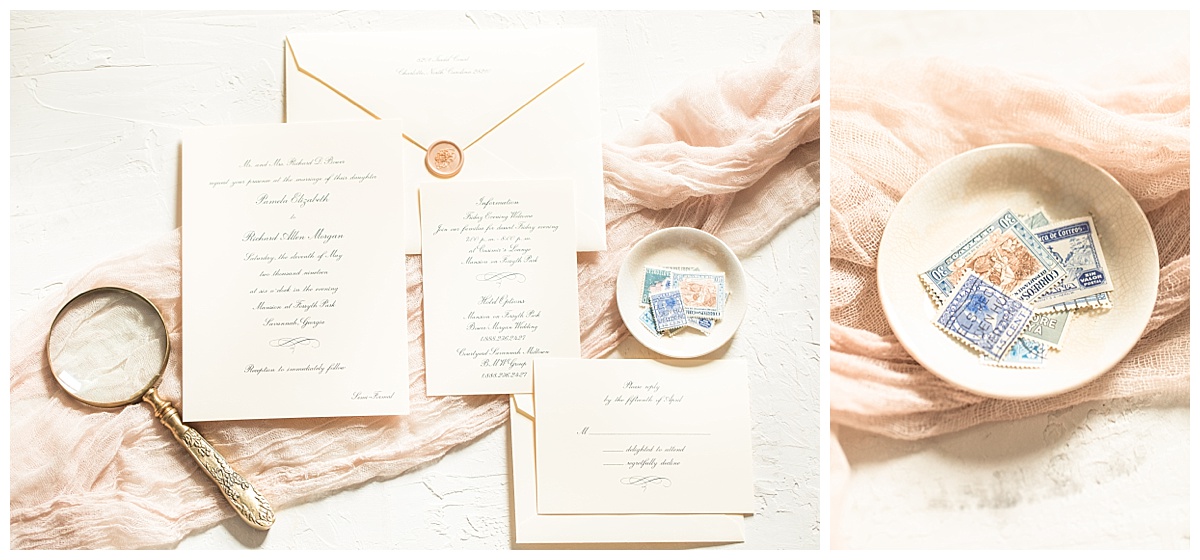 Charlotte, North Carolina
Mr. and Mrs. Richard D. Bower
request your presence at the marriage of their daughter
Pamela Elizabeth
to
Richard Allen Morgan
Saturday, the eleventh of May
two thousand nineteen
at six o'clock in the evening
Mansion at Forsyth Park
Savannah, Georgia
Reception to immediately follow
Semi-Formal
Information
Friday Evening Welcome
Join our families for dessert Friday evening
p.m.
at Casimir's Lounge
Mansion on Forsyth Park
Hotel Options
Mansion on Forsyth Park
Bower Morgan Wedding
1.888.236.2427
Courtyard Savannah Midtown
B M W Group
1.888.236.2427
Please reply
by the fifteenth of April
M
delighted to attend
regretfully decline
30
30
CORREOS
DE CORREOS
SIN
VALOR
POSTAL